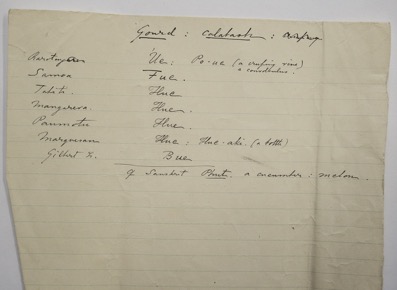 Gourd : calabash :
Rarotongan Ue : Po-ue (a creeping vine)
a convolvulus.
Samoa Fue.
Tahiti Hue
Mangareva. Hue.
Paumotu Hue.
Marquesan Hue : Hue-aki. (a bottle)
Gilbert I. Bue
cf Sanskrit Phut. a cucumber : melon.